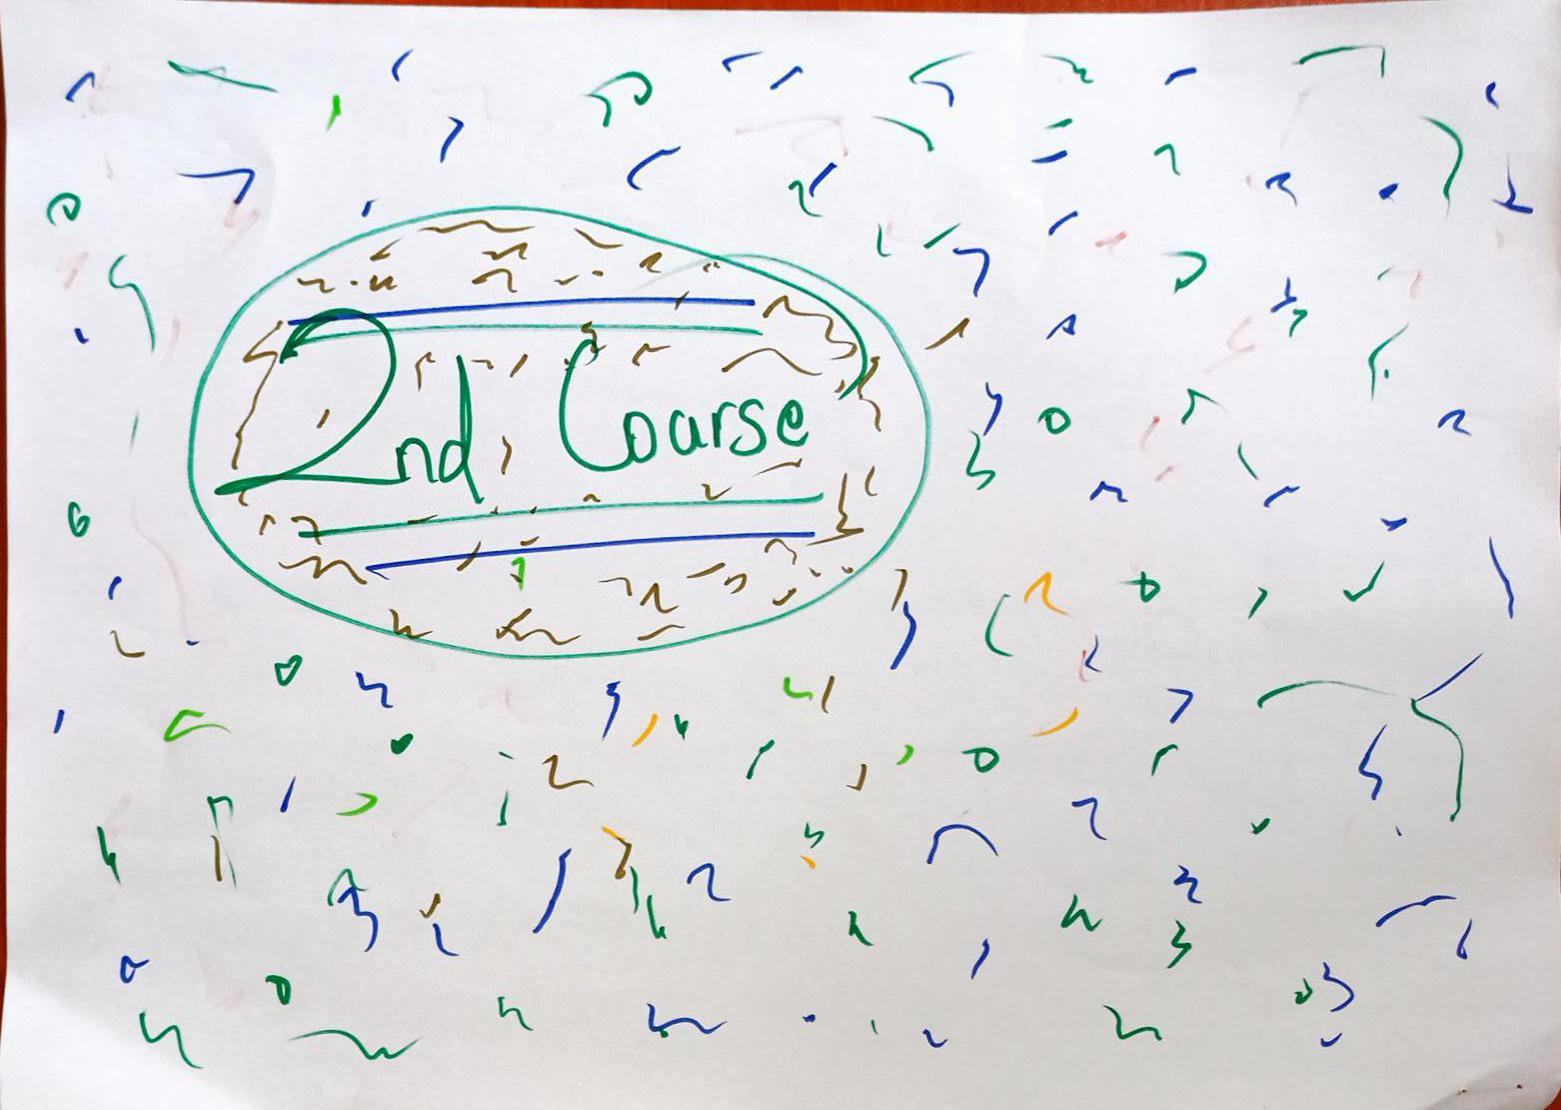 2nd Coarse